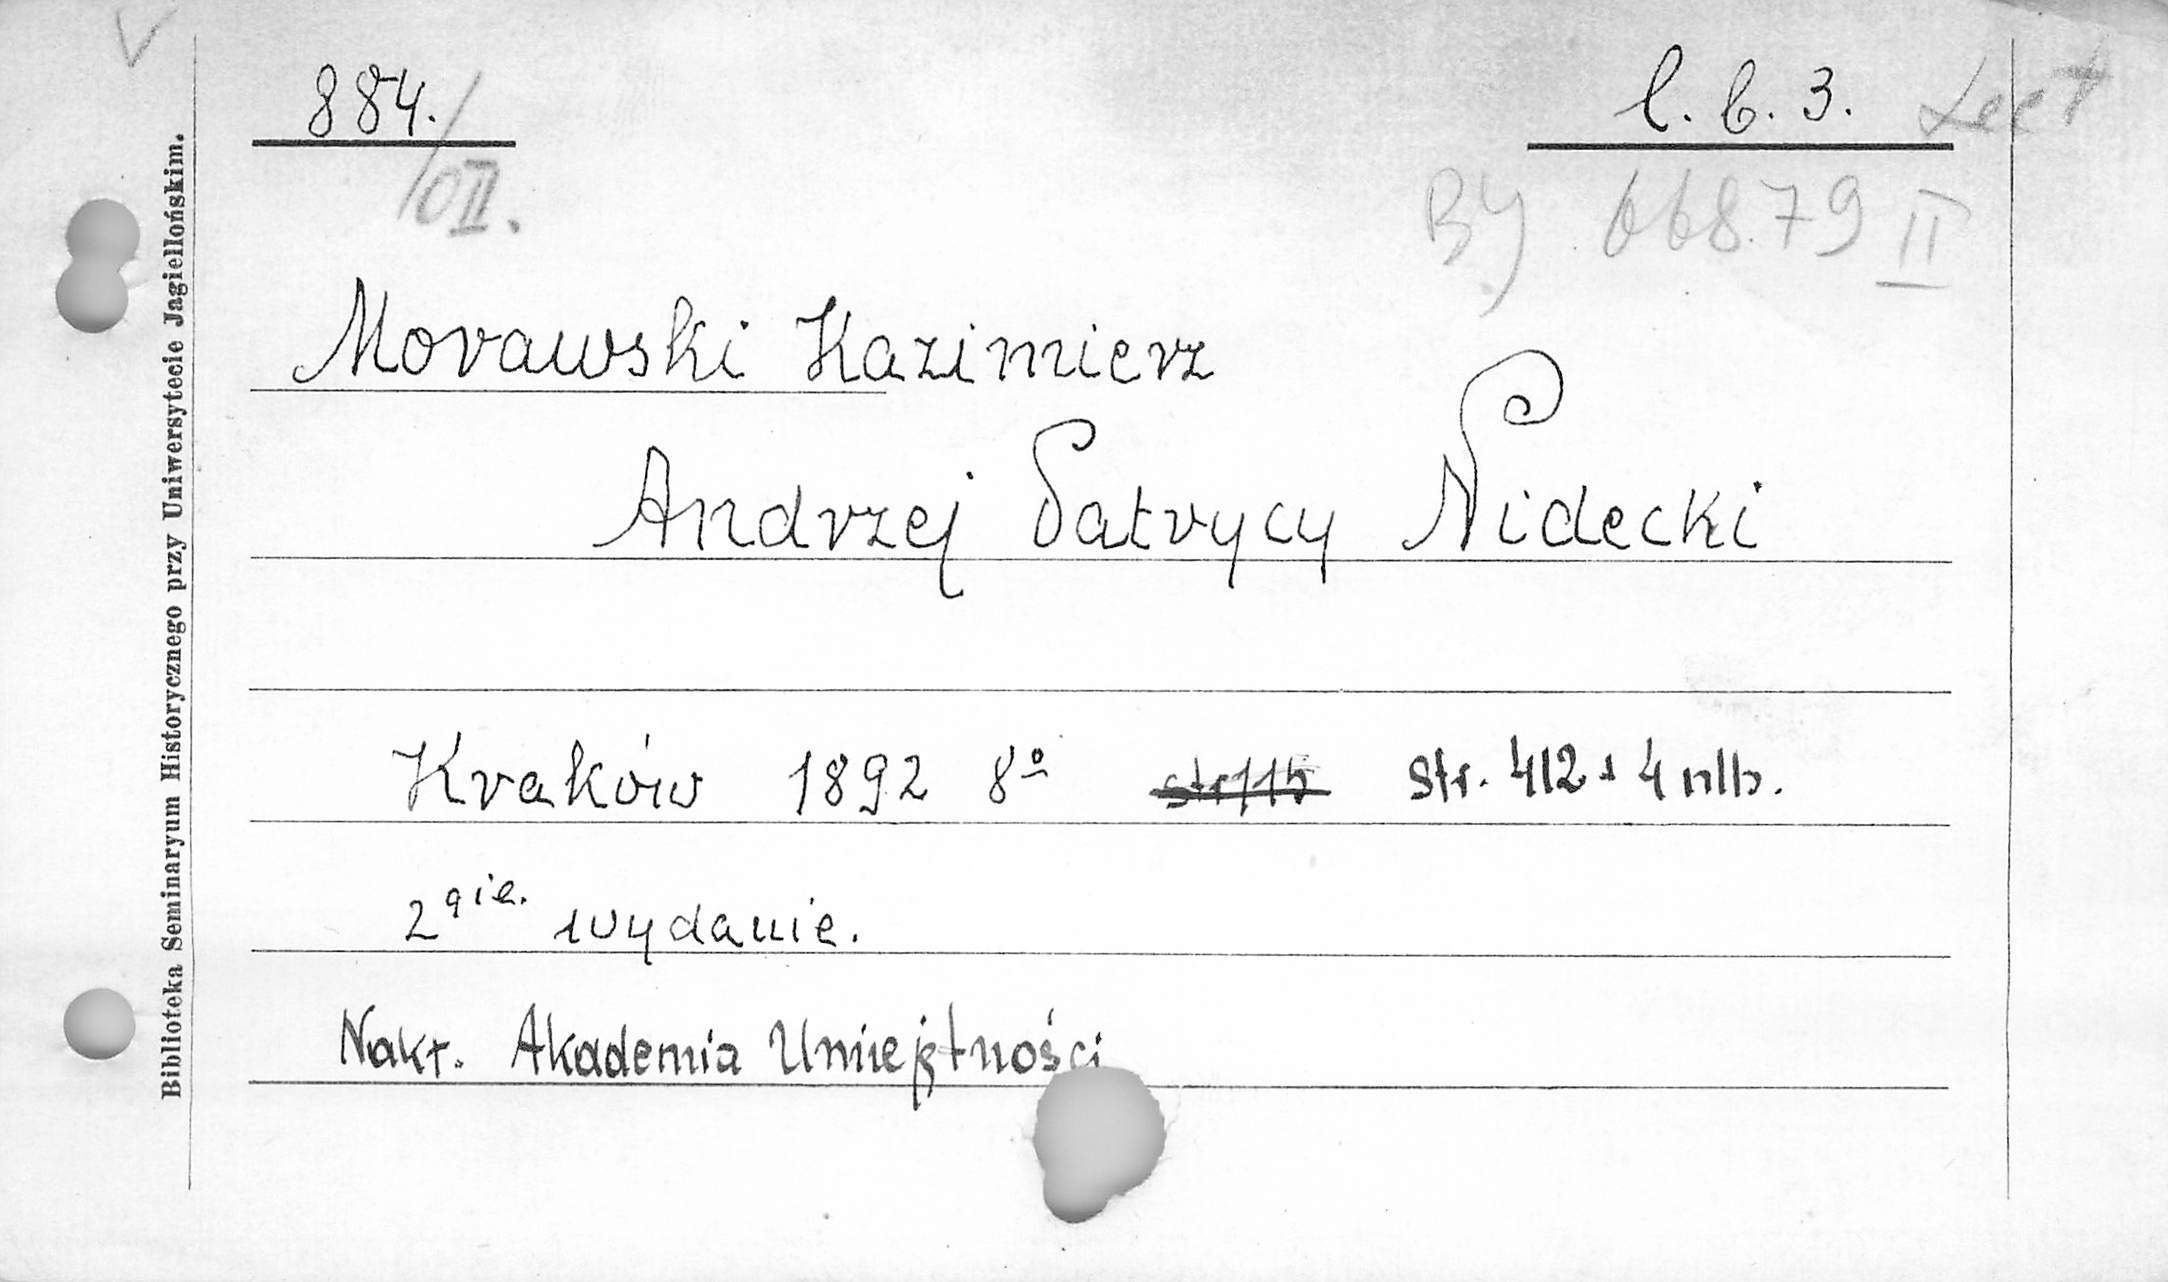 884./OII.
l. b. 3.
BJ 66879 II
Morawski Kazimierz
Andrzej Patrycy Nidecki
Kraków 1892 8º str 115 str. 412 + 4 nlb.
2gie. wydanie.
Nakł. Akademia Umiejętności
Biblioteka Seminaryum Historycznego przy Uniwersytecie Jagiellońskim.